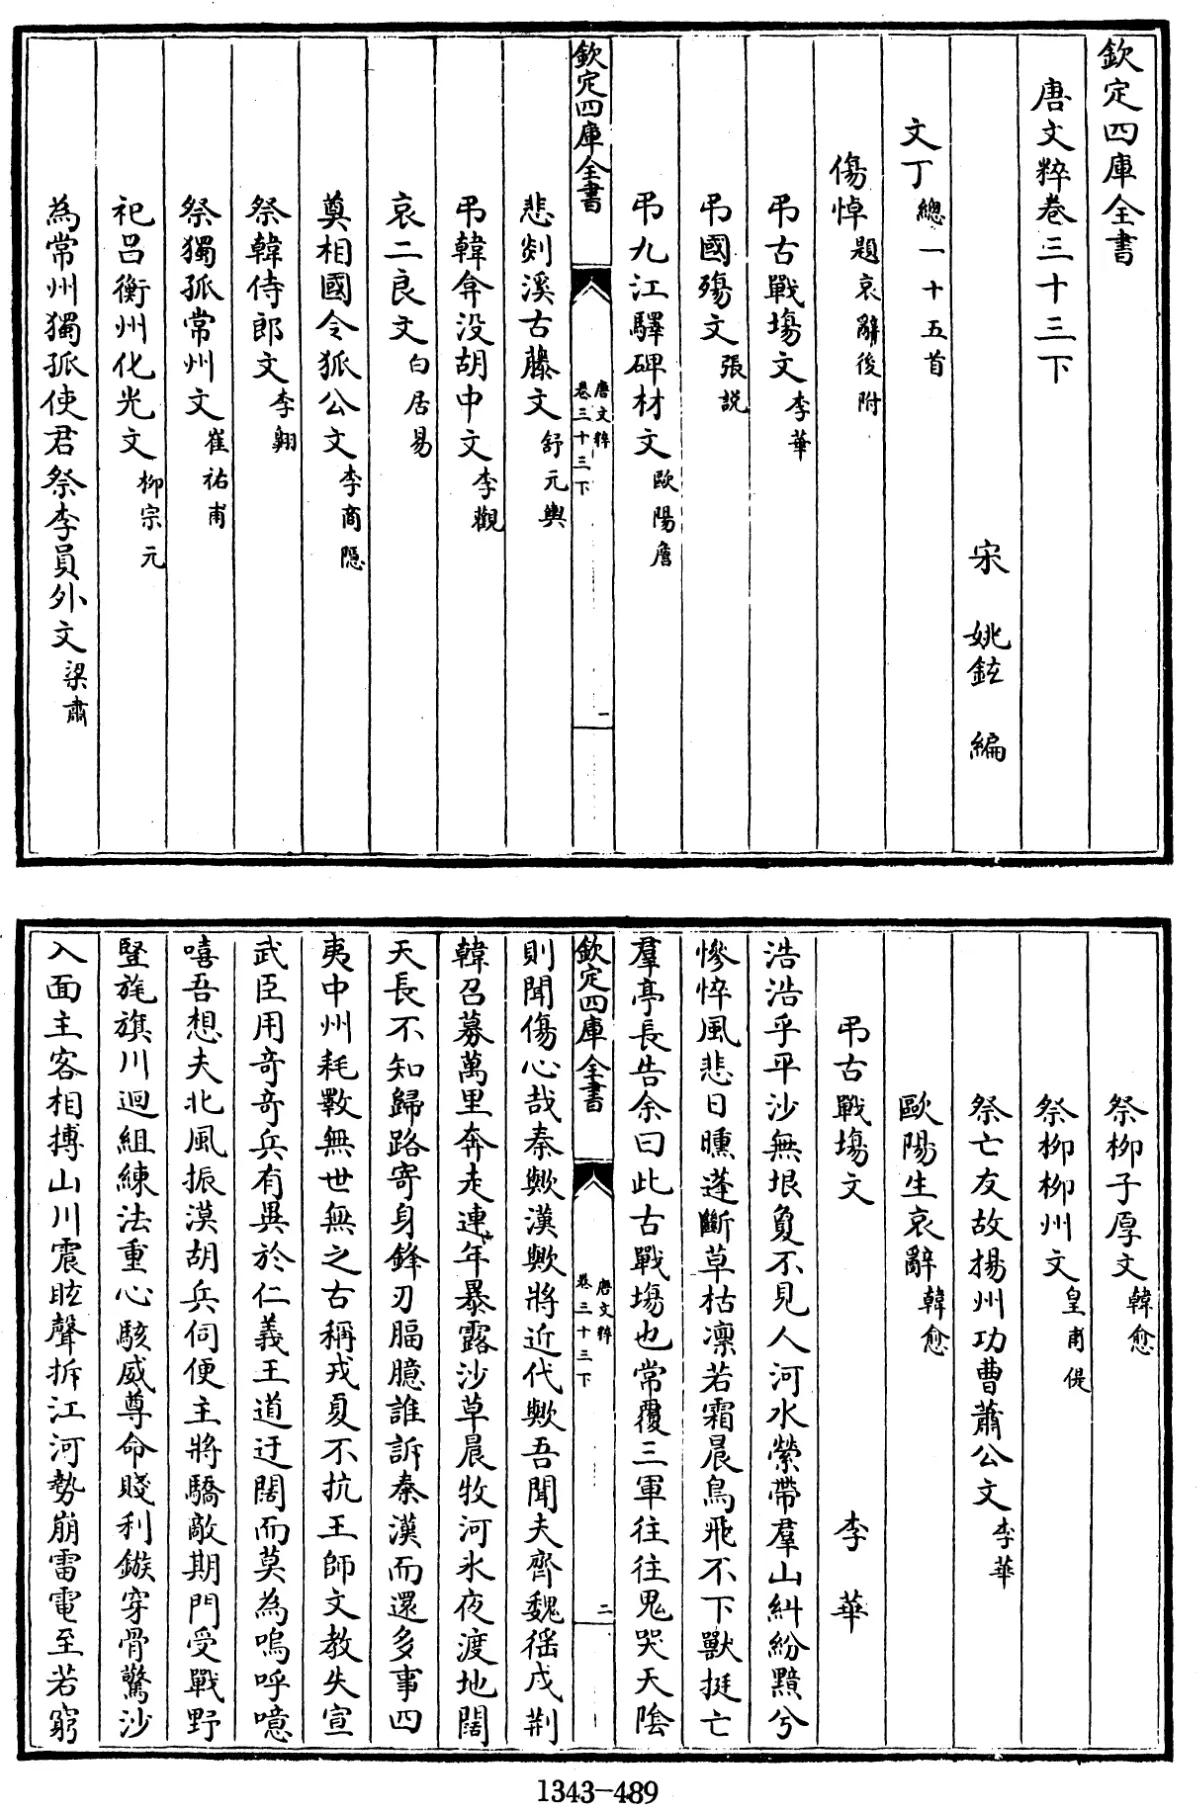 欽定四庫全書
唐文粹卷三十三下
宋 姚鉉 編
文丁總一十五首
傷悼題哀辭後附
弔古戰場文李華
弔國殤文張説
弔九江驛碑材文歐陽詹
欽定四庫全書 唐文粹卷三十三下 一
悲剡溪古藤文舒元輿
弔韓弇没胡中文李觀
哀二良文白居易
奠相國令狐公文李商隠
祭韓侍郎文李翺
祭獨孤常州文崔祐甫
祀呂衡州化光文柳宗元
為常州獨孤使君祭李員外文梁肅
祭柳子厚文韓愈
祭柳柳州文皇甫偍
祭亡友故揚州功曹蕭公文李華
歐陽生哀辭韓愈
弔古戰場文 李華
浩浩乎平沙無垠敻不見人河水縈帶羣山糾紛黯兮
慘悴風悲日曛蓬斷草枯凛若霜晨鳥飛不下獸挺亡
羣亭長告余曰此古戰場也常覆三軍往往鬼哭天陰
欽定四庫全書 唐文粹卷三十三下 二
則聞傷心哉秦歟漢歟將近代歟吾聞夫齊魏徭戍荆
韓召募萬里奔走連年暴露沙草晨牧河氷夜渡地闊
天長不知歸路寄身鋒刃腷臆誰訴秦漢而還多事四
夷中州耗斁無世無之古稱戎夏不抗王師文教失宣
武臣用奇奇兵有異於仁義王道迂闊而莫為嗚呼噫
嘻吾想夫北風振漠胡兵伺便主將驕敵期門受戰野
竪旄旗川迴組練法重心駭威尊命賤利鏃穿骨驚沙
入面主客相搏山川震眩聲拆江河勢崩雷電至若窮
1343-489